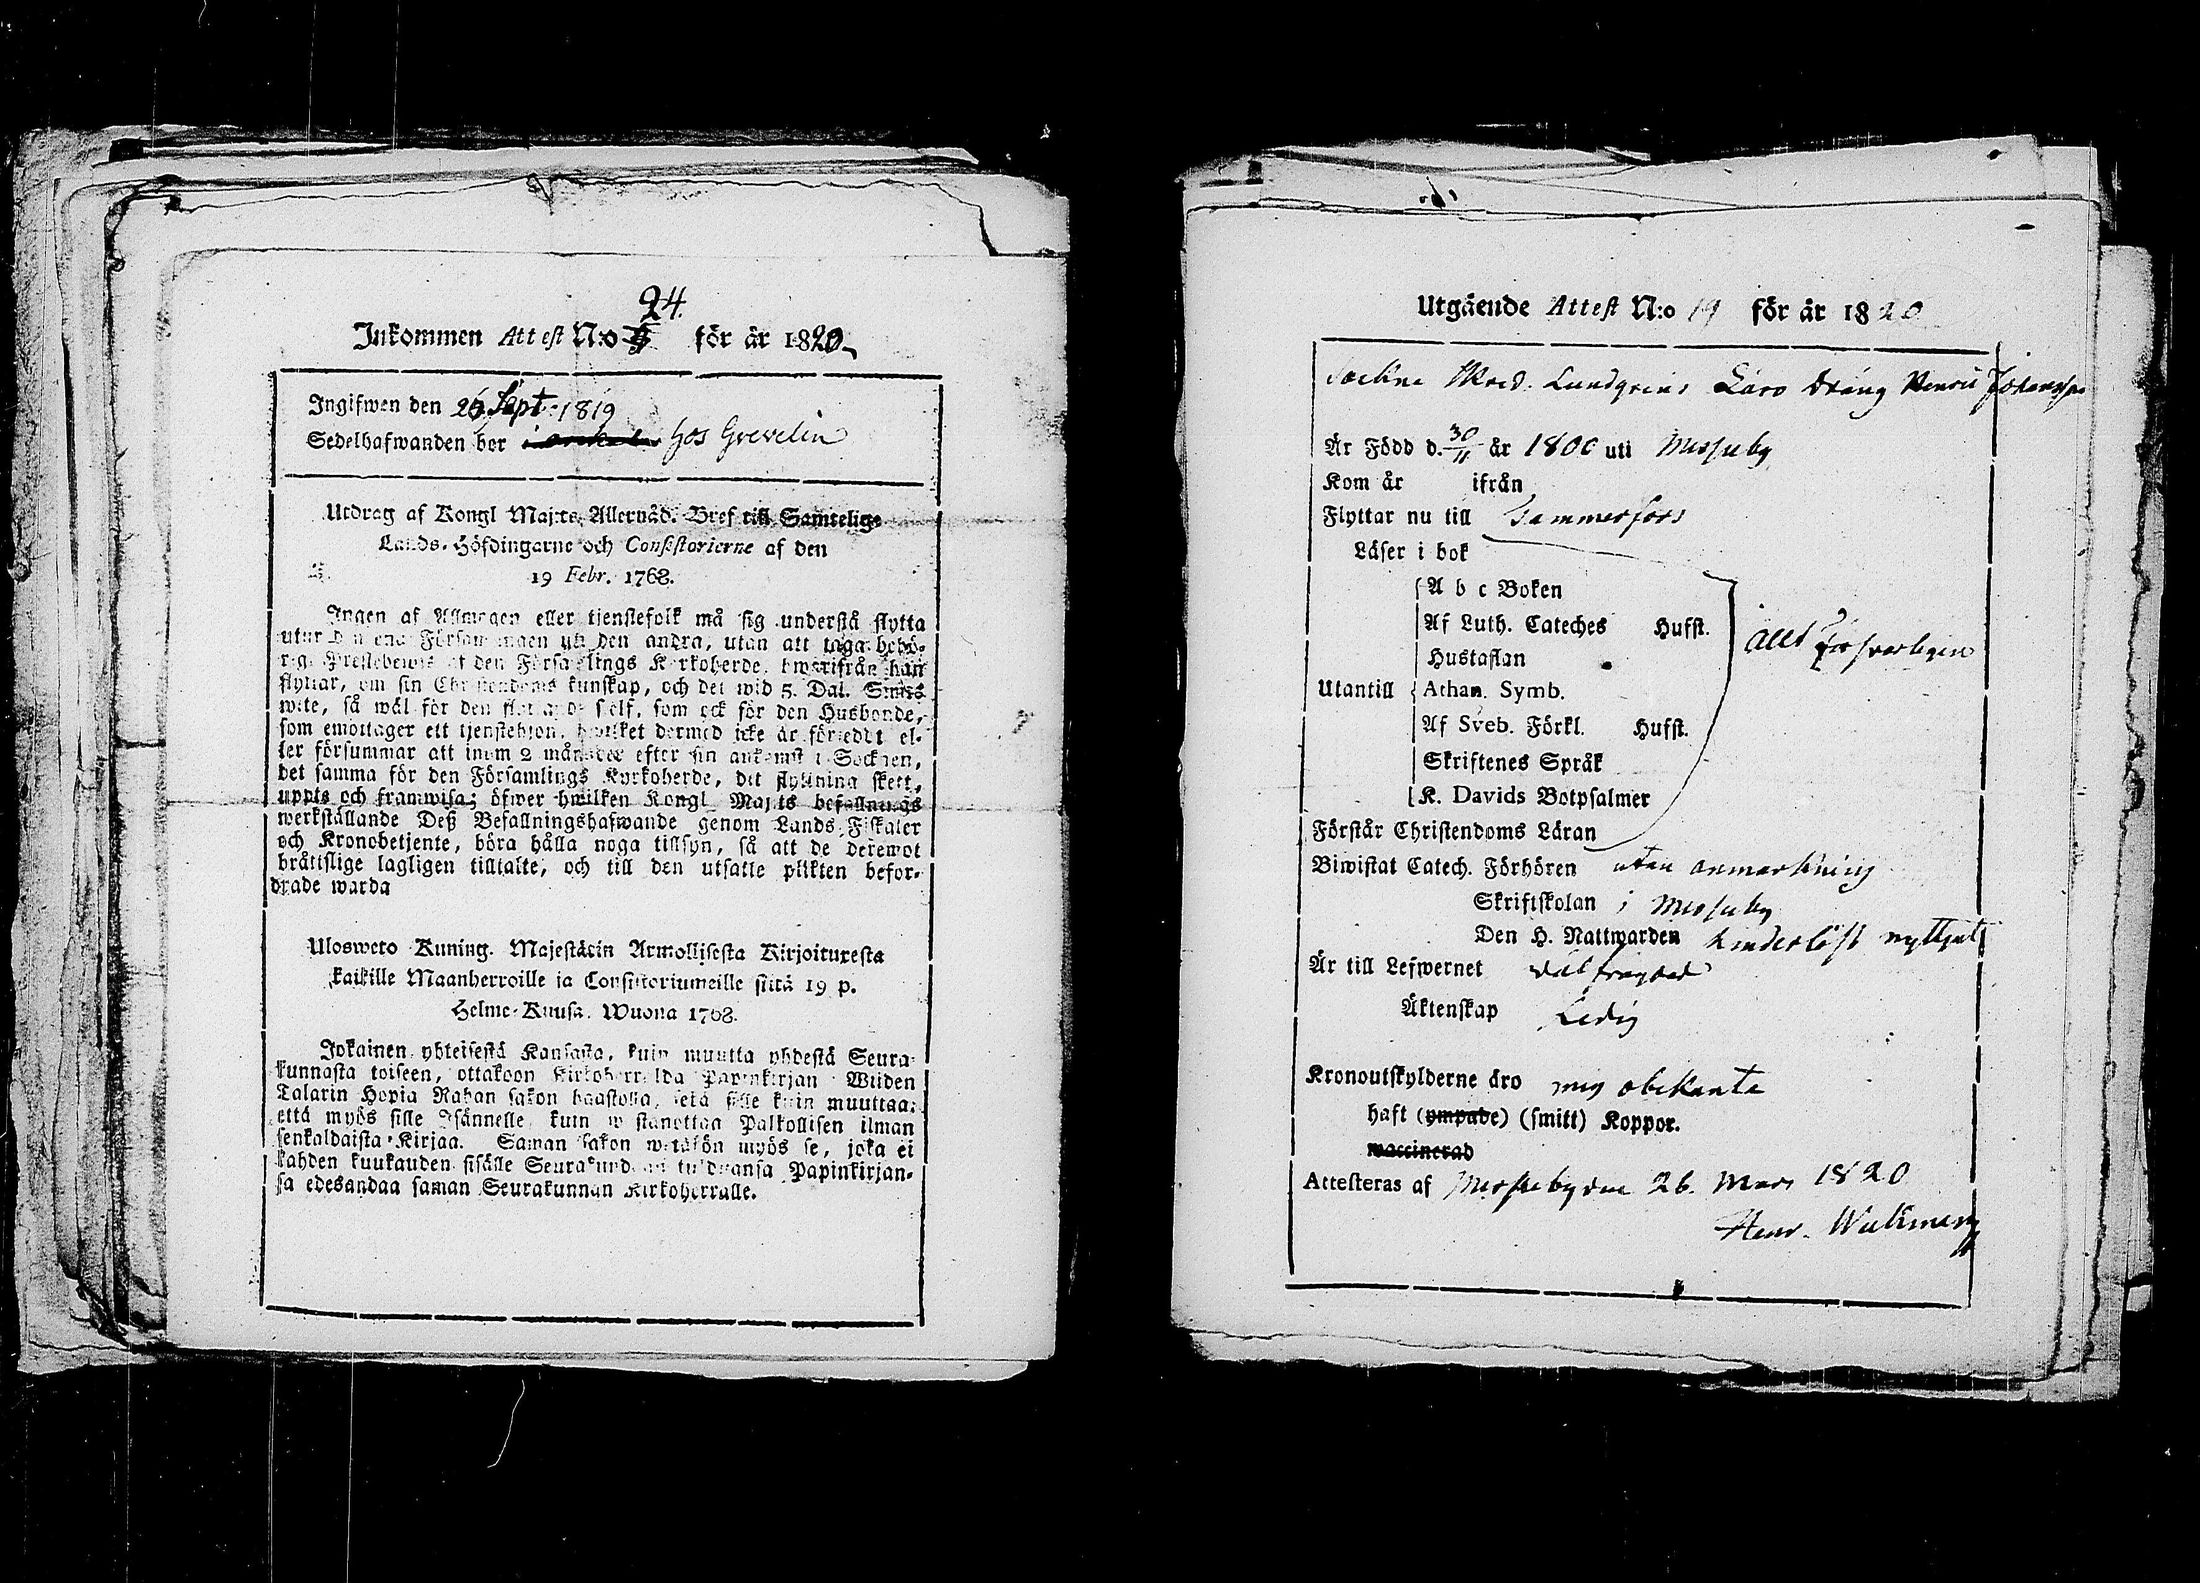 24.
Inkommen Attest N:o för år 1820
Ingifwen den 25 Sept. 1819
Sedelhafwanden bor hos Grevelin
Utdrag af Kongl Maj:ts Allernåd. Bref till Samtelige
Lands-Höfdingarne och Consistorierne af den
19 Febr. 1768.
Ingen af Allmogen eller tjenstefolk må sig understå flytta
utur den ena Församlingen uti den andra, utan att taga behö-
rige Prestebewis af den Församlings Kyrkoherde, hwarifrån han
flyttar, om sin Christendoms kunskap, och det wid 5. Dal. Smts
wite, så wäl för den flyttande sielf, som ock för den Husbonde,
som emottager ett tjenstehjon, hwilket dermed icke är förseddt el-
ler försummar att inom 2 månader efter sin ankomst i Socknen,
det samma för den Församlings Kyrkoherde, dit flyttning skett,
uppte och framwisa; öfwer hwilken Kongl Maj:ts befallnings
werkställande Deß Befallningshafwande genom Lands Fiskaler
och Kronobetjente, böra hålla noga tillsyn, så att de deremot
bråttslige lagligen tilltalte, och till den utsatte plikten befor-
drade warda
Ulosweto Kuning. Majestätin Armollisesta Kirjoituxesta
kaikille Maanherroille ja Consistoriumeille siitä 19 p.
Helme-Kuusa. Wuona 1768.
Jokainen yhteisestä Kansasta, kuin muutta yhdestä Seura-
kunnasta toiseen, ottakoon Kirkoherralda Papinkirjan Wiiden
Talarin Hopia Rahan sakon haastolla, sekä sille kuin muuttaa:
että myös sille Isännelle, kuin wastanottaa Palkollisen ilman
senkaldaista Kirjaa. Saman sakon wetäkön myös se, joka ei
kahden kuukauden sisälle Seurakundaan tulduansa Papinkirjan-
sa edesandaa saman Seurakunnan Kirkoherralle.
Utgående Attest N:o 19 för år 1820
Lundqvins Låro Dräng Henric Johansson
Är Född d. 30/11 år 1800 uti Messuby
Kom år ifrån
Flyttar nu till Tammerfors
Läser i bok
A b c Boken
Af Luth. Cateches Hufst.
Hustaflan
Allt försvarligen
Utantill Athan. Symb.
Af Sveb. Förkl. Hufst.
Skriftenes Språk
K. Davids Botpsalmer
Förstår Christendoms Läran
Biwistat Catech. Förhören utan anmärkning
Skriftskolan i Messuby
Den H. Nattwarden hinderlöst nyttjat
Är till Lefwernet väl frägdad
Äktenskap Ledig
Kronoutskylderne äro mig obekanta
haft (ympade) (smitt) Koppor.
waccinerad
Attesteras af Messuby den 26. Mars 1820
Henr. Wallmen